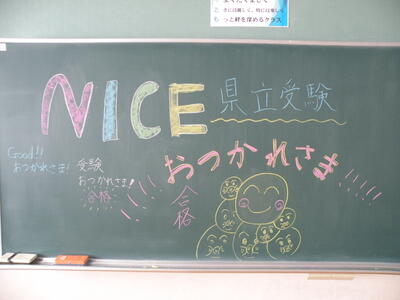 ときには厳しく、時には楽しく
もっと絆を深めるクラス
NICE 県立受験
Good!!
おつかれさま!
受験
おつかれさま!
合格
おつかれさま!!!!!
合格